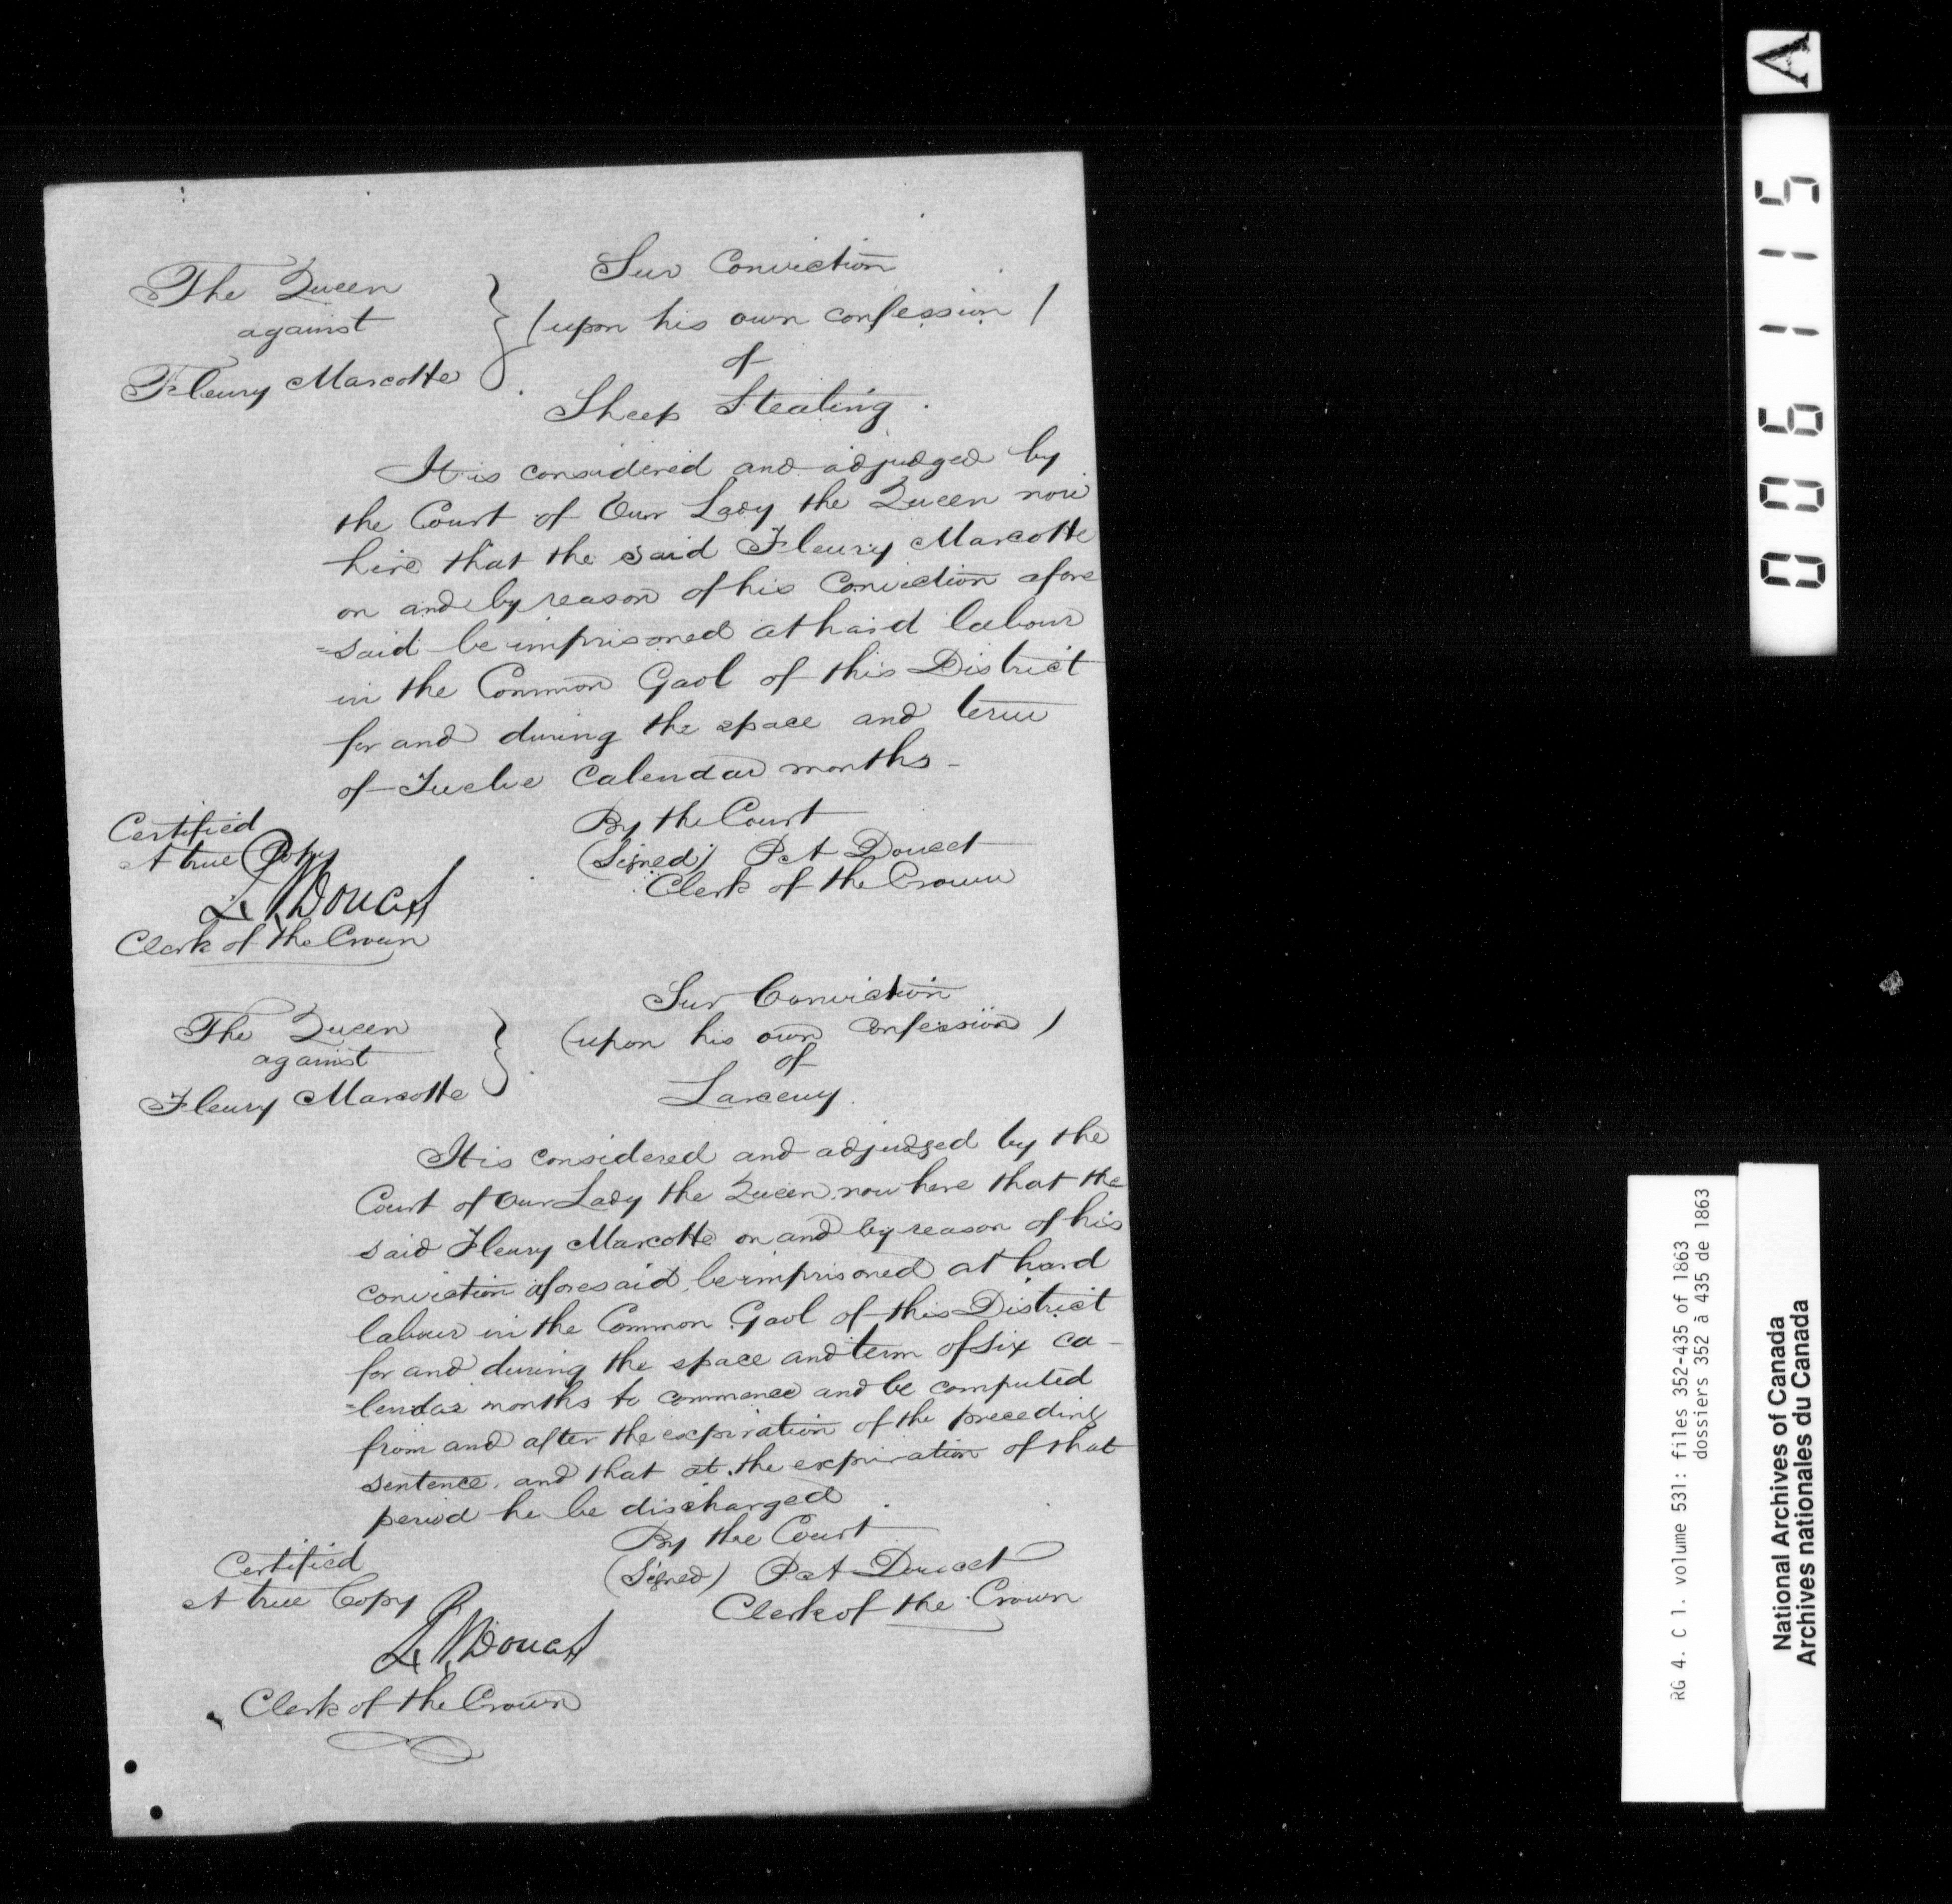 The Queen
against
Fleury Marcotte
Sur Conviction
(upon his own confession)
of
Sheep Stealing.
It is considered and adjudged by
the Court of Our Lady the Queen now
here that the said Fleury Marcotte
on and by reason of his Conviction afore
=said be imprisoned at hard labour
in the Common Gaol of this District
for and during the space and term
of Twelve Calendar months -
By the Court
(Signed) Pct Doucet
Clerk of the Crown
Certified
A true Copy
Doucet
Clerk of the Crown
The Queen
against
Fleury Marcotte
Sur Conviction
(upon his own Confession)
of
Larceny.
It is considered and adjudged by the
Court of Our Lady the Queen now here that the
said Fleury Marcotte on and by reason of his
conviction aforesaid, be imprisoned at hard
labour in the Common Gaol of this District
for and during the space and term of six ca-
=lendar months to commence and be computed
from and after the expiration of the preceding
sentence, and that at the expiration of that
period he be discharged.
By the Court
(Signed) Pct Doucet
Clerk of the Crown
Certified
A true Copy
Doucet
Clerk of the Crown
A
006115
RG 4. C 1. volume 531: files 352-435 of 1863
dossiers 352 à 435 de 1863
National Archives of Canada
Archives nationales du Canada